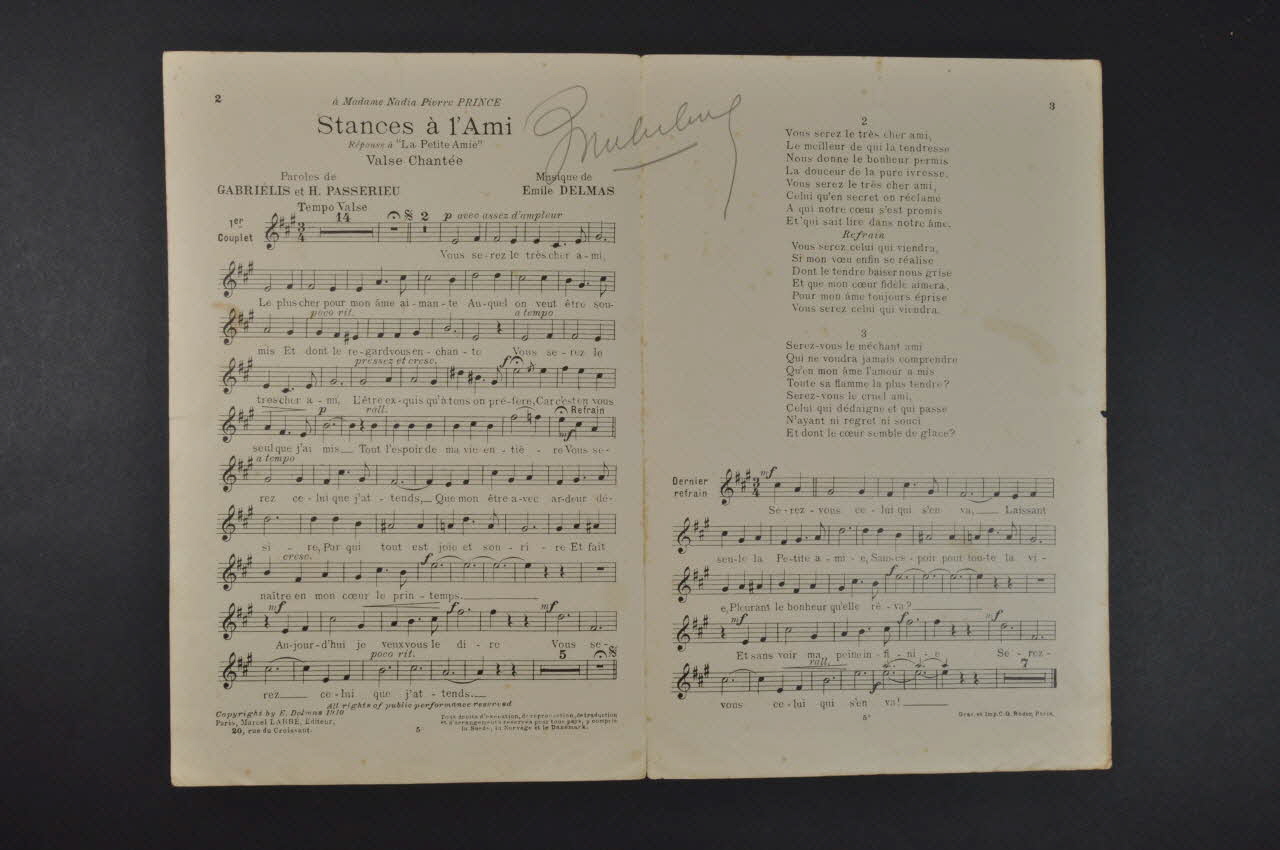 2
à Madame Nadia Pierre PRINCE
Stances à l'Ami
Réponse à "La Petite Amie"
Valse Chantée
Paroles de
GABRIÉLIS et H. PASSERIEU
Musique de
Emile DELMAS
Tempo Valse
1er Couplet
14
2
p avec assez d'ampleur
Vous se-rez le très cher a-mi,
Le plus cher pour mon âme ai-man-te Au-quel on veut être sou-
poco rit. a tempo
mis Et dont le re-gard vous en-chan-te Vous se-rez le
pressez et cresc. f
très cher a-mi, L'être ex-quis qu'à tous on pré-fère, Car c'est en vous
p rall. Refrain
mf
seul que j'ai mis Tout l'espoir de ma vie en-tiè-re Vous se-
a tempo
rez ce-lui que j'at-tends, Que mon être a-vec ardeur dé-
si-re, Par qui tout est joie et sou-ri-re Et fait
cresc. f
naître en mon cœur le prin-temps.
mf f mf
Au-jour-d'hui je veux vous le di-re Vous se-
poco rit. 5
rez ce-lui que j'at-tends.
All rights of public performance reserved
Copyright by E. Delmas 1910
Paris, Marcel LABBÉ, Éditeur,
20, rue du Croissant.
5
Tous droits d'exécution, de reproduction, de traduction
et d'arrangements réservés pour tous pays, y compris
la Suède, la Norvège et le Danemark.
3
2
Vous serez le très cher ami,
Le meilleur de qui la tendresse
Nous donne le bonheur permis
La douceur de la pure ivresse,
Vous serez le très cher ami,
Celui qu'en secret on réclame
A qui notre cœur s'est promis
Et qui sait lire dans notre âme.
Refrain
Vous serez celui qui viendra,
Si mon vœu enfin se réalise
Dont le tendre baiser nous grise
Et que mon cœur fidèle aimera,
Pour mon âme toujours éprise
Vous serez celui qui viendra.
3
Serez-vous le méchant ami
Qui ne voudra jamais comprendre
Qu'en mon âme l'amour a mis
Toute sa flamme la plus tendre?
Serez-vous le cruel ami,
Celui qui dédaigne et qui passe
N'ayant ni regret ni souci
Et dont le cœur semble de glace?
Dernier refrain
mf
Se-rez-vous ce-lui qui s'en va, Laissant
seu-le la Pe-tite a-mi-e, Sans es-poir pour tou-te la vi-
f
e, Pleurant le bonheur qu'elle rê-va?
mf f mf
Et sans voir ma peine in-fi-ni-e Se-rez-
rall. f 7
vous ce-lui qui s'en va!
5
Grav. et Imp. C.G. Röder, Paris.